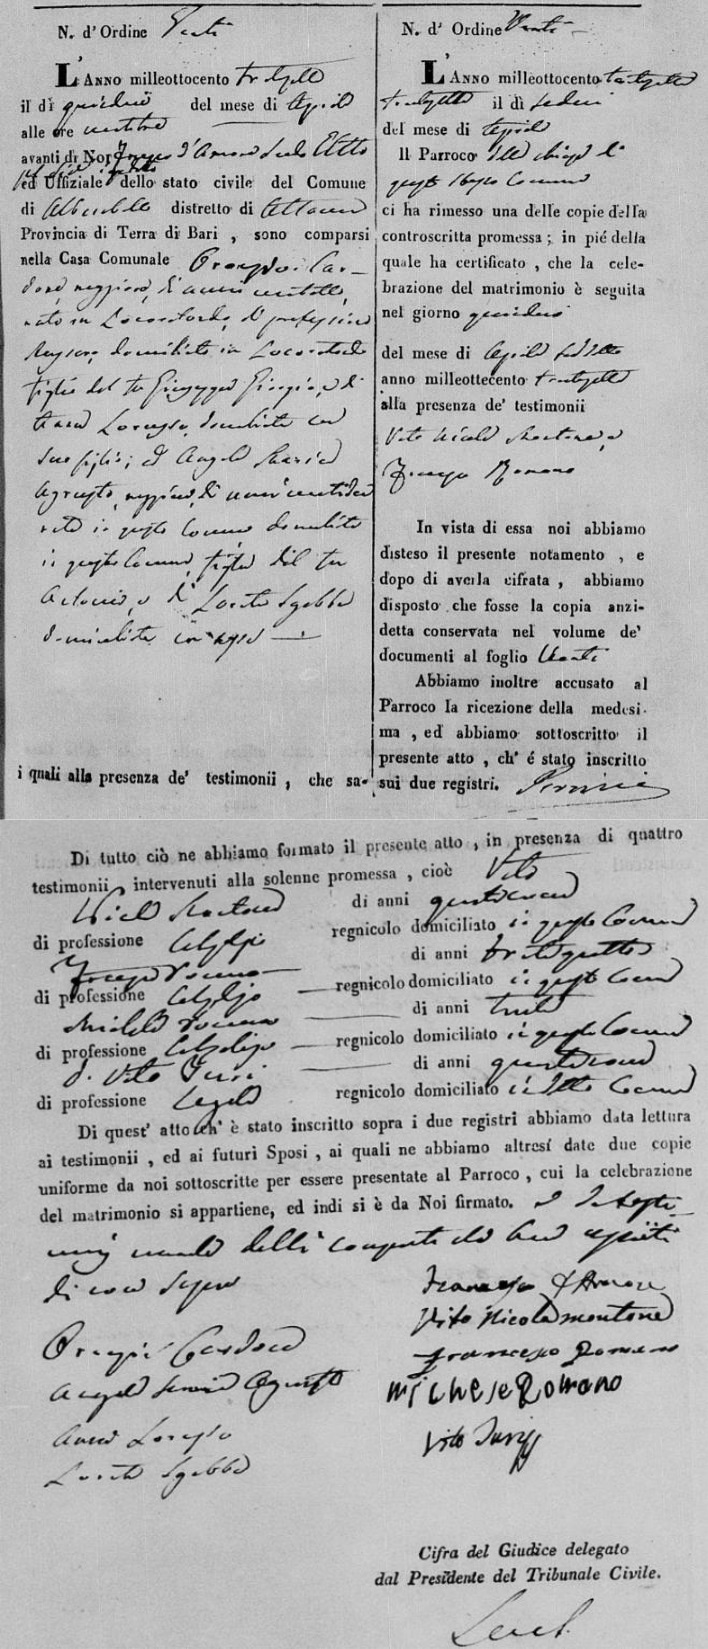 N. d' Ordine Venti
L'ANNO milleottocento trentotto
il dì quindici del mese di Aprile
alle ore ventitre
avanti di Noi Francesco d'Amore Secondo Eletto
ed Uffiziale dello stato civile del Comune
di Alberobello distretto di Altamura
Provincia di Terra di Bari , sono comparsi
nella Casa Comunale Oronzo Car-
done, maggiore, di anni ventotto,
nato in Locorotondo, di professione
domiciliato in Locorotondo
figlio del fu Giuseppe Giorgio, e di
Anna Loruspo, domiciliata con
suo figlio; ed Angela Maria
Agrusta, maggiore, di anni
nata in questo Comune domiciliata
in questo Comune, figlia del fu
Antonio, e di Loreta Sgobba
domiciliata in esso
i quali alla presenza de' testimonii , che sa-
N. d' Ordine Venti
L'ANNO milleottocento trentotto
trentotto il dì sedici
del mese di Aprile
Il Parroco della chiesa di
questo stesso Comune
ci ha rimesso una delle copie della
controscritta promessa ; in pié della
quale ha certificato , che la cele-
brazione del matrimonio è seguita
nel giorno quindici
del mese di Aprile suddetto
anno milleottecento trentotto
alla presenza de' testimonii
Vito Nicola Montone, e
Francesco Romano
In vista di essa noi abbiamo
disteso il presente notamento , e
dopo di averla cifrata , abbiamo
disposto che fosse la copia anzi-
detta conservata nel volume de'
documenti al foglio Venti
Abbiamo inoltre accusato al
Parroco la ricezione della medesi-
ma , ed abbiamo sottoscritto il
presente atto , ch' é stato inscritto
sui due registri.
Di tutto ciò ne abbiamo formato il presente atto , in presenza di quattro
testimonii intervenuti alla solenne promessa , cioè Vito
Nicola Montone di anni
di professione regnicolo domiciliato in questo Comune
Francesco Romano di anni trentaquattro
di professione regnicolo domiciliato in questo Comune
Michele Romano di anni trenta
di professione regnicolo domiciliato in questo Comune
D. Vito Turi di anni
di professione regnicolo domiciliato in detto Comune
Di quest' atto ch' è stato inscritto sopra i due registri abbiamo data lettura
ai testimonii , ed ai futuri Sposi , ai quali ne abbiamo altresí date due copie
uniforme da noi sottoscritte per essere presentate al Parroco , cui la celebrazione
del matrimonio si appartiene, ed indi si è da Noi firmato. e da testi-
di non sapere
Francesco d'Amore
Vito Nicola montone
Francesco Romano
michele Romano
Vito Turi
Oronzo Cardone
Angela Maria Agrusta
Anna Loruspo
Loreta Sgobba
Cifra del Giudice delegato
dal Presidente del Tribunale Civile.